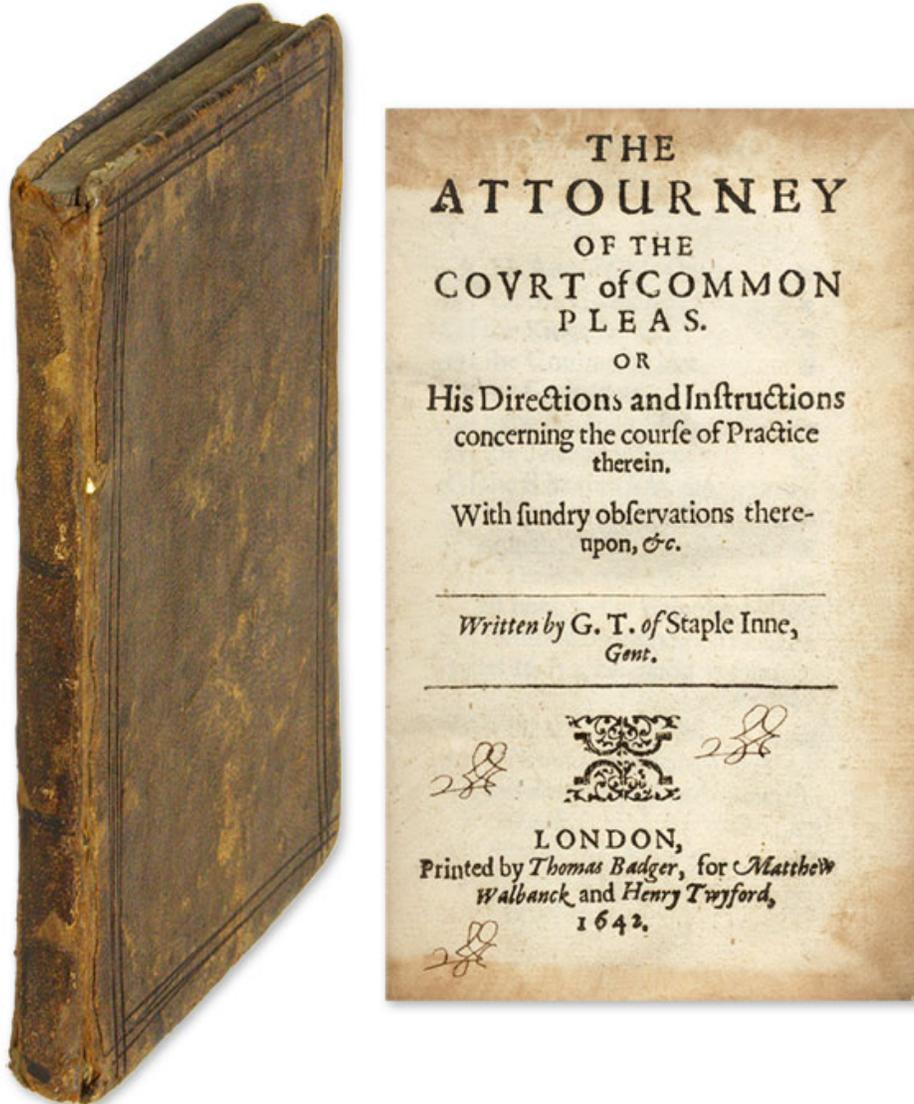 THE
ATTOURNEY
OF THE
COVRT of COMMON
PLEAS.
OR
His Directions and Inſtructions
concerning the courſe of Practice
therein.
With ſundry obſervations there-
upon, &c.
Written by G. T. of Staple Inne,
Gent.
LONDON,
Printed by Thomas Badger, for Matthew
Walbanck and Henry Twyford,
1642.